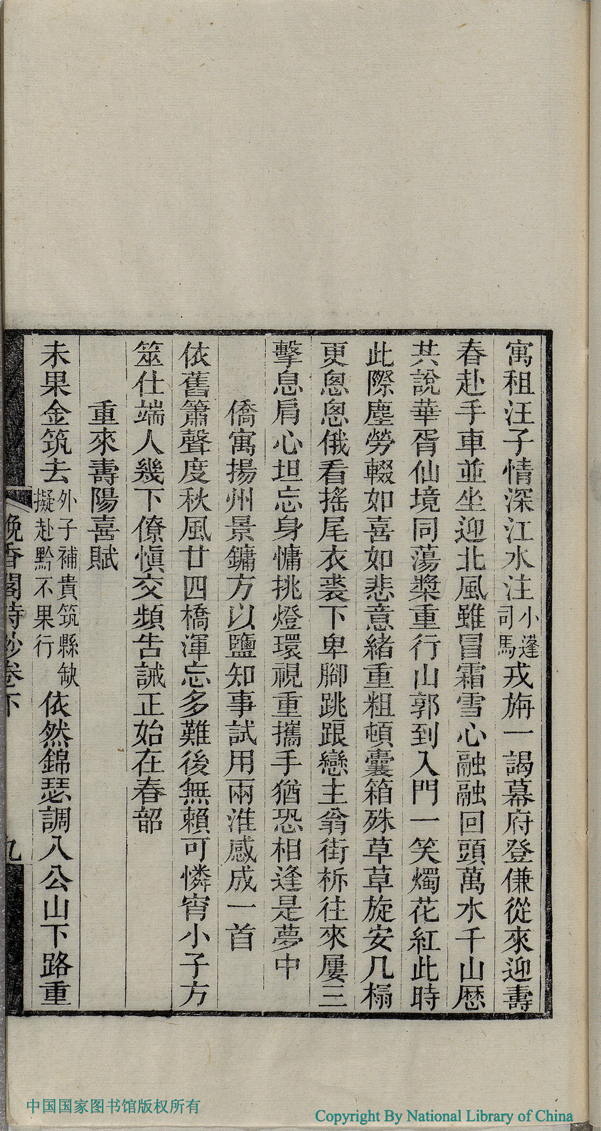 寓租汪子情深江水注小蓬司馬戎旃一謁幕府登傔從來迎壽
春赴手車並坐迎北風雖冒霜雪心融融回頭萬水千山厯
共說華胥仙境同蕩槳重行山郭到入門一笑燭花紅此時
此際塵勞輟如喜如悲意緒重粗頓囊箱殊草草旋安几榻
更悤悤俄看搖尾衣裘下卑腳跳踉戀主翁街柝往來屢三
擊息肩心坦忘身慵挑燈環視重攜手猶恐相逢是夢中
僑寓揚州景鏞方以鹽知事試用兩淮感成一首
依舊簫聲度秋風廿四橋渾忘多難後無賴可憐宵小子方
筮仕端人幾下僚愼交頻告誡正始在春韶
重來壽陽喜賦
未果金筑去外子補貴筑縣缺擬赴黔不果行依然錦瑟調八公山下路重
晚香閣詩鈔卷下
九
中国国家图书馆版权所有
Copyright By National Library of China